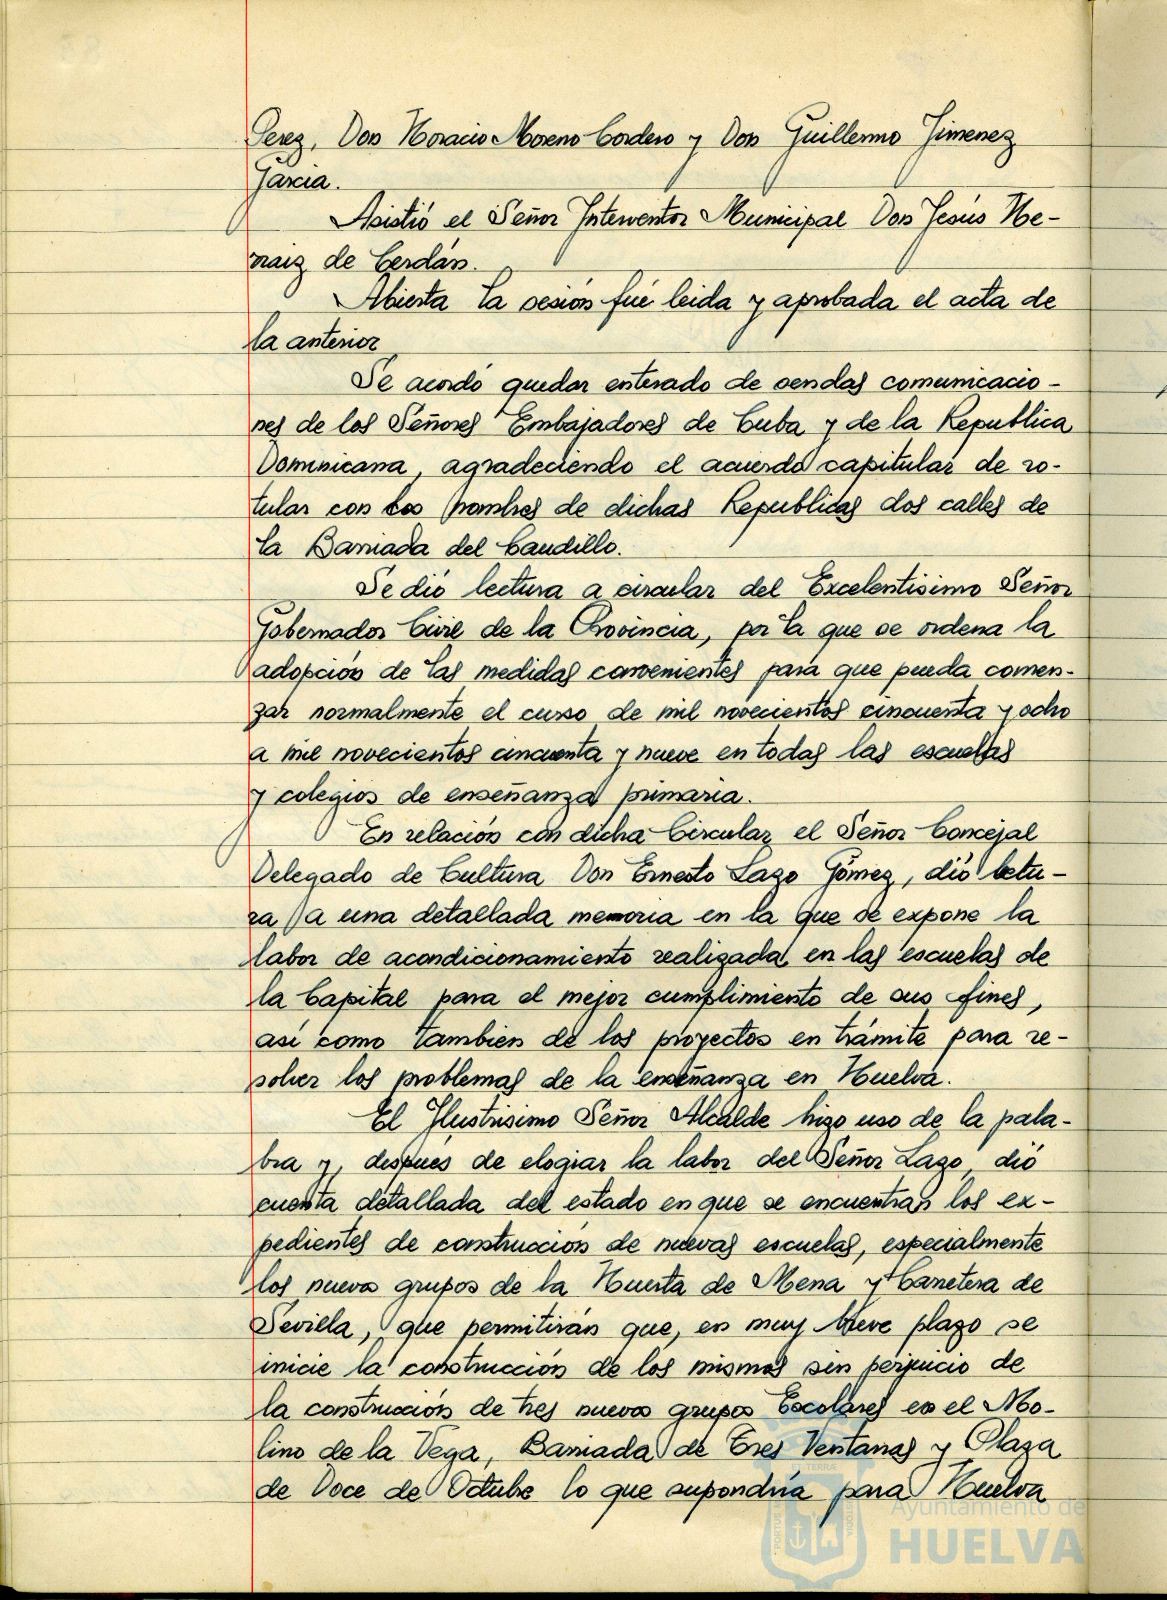 Perez, Don Horacio Moreno Cordero y Don Guillermo Jimenez
Garcia.
Asistió el Señor Interventor Municipal Don Jesús He-
raiz de Cerdán.
Abierta la sesión fué leida y aprobada el acta de
la anterior
Se acordó quedar enterado de sendas comunicacio-
nes de los Señores Embajadores de Cuba y de la Republica
Dominicana, agradeciendo el acuerdo capitular de ro-
tular con los nombres de dichas Republicas dos calles de
la Barriada del Caudillo.
Se dió lectura a circular del Excelentisimo Señor
Gobernador Civil de la Provincia, por la que se ordena la
adopción de las medidas convenientes para que pueda comen-
zar normalmente el curso de mil novecientos cincuenta y ocho
a mil novecientos cincuenta y nueve en todas las escuelas
y colegios de enseñanza primaria.
En relación con dicha Circular el Señor Concejal
Delegado de Cultura Don Ernesto Lazo Gómez, dió lectu-
ra a una detallada memoria en la que se expone la
labor de acondicionamiento realizada en las escuelas de
la Capital para el mejor cumplimiento de sus fines,
así como tambien de los proyectos en trámite para re-
solver los problemas de la enseñanza en Huelva.
El Ilustrisimo Señor Alcalde hizo uso de la pala-
bra y, despues de elogiar la labor del Señor Lazo, dió
cuenta detallada del estado en que se encuentran los ex-
pedientes de construcción de nuevas escuelas, especialmente
los nuevos grupos de la Huerta de Mena y Carretera de
Sevilla, que permitirán que, en muy breve plazo se
inicie la construcción de los mismos sin perjuicio de
la construcción de tres nuevos grupos Escolares en el Mo-
lino de la Vega, Barriada de Tres Ventanas y Plaza
de Doce de Octubre lo que supondría para Huelva
Ayuntamiento de
HUELVA